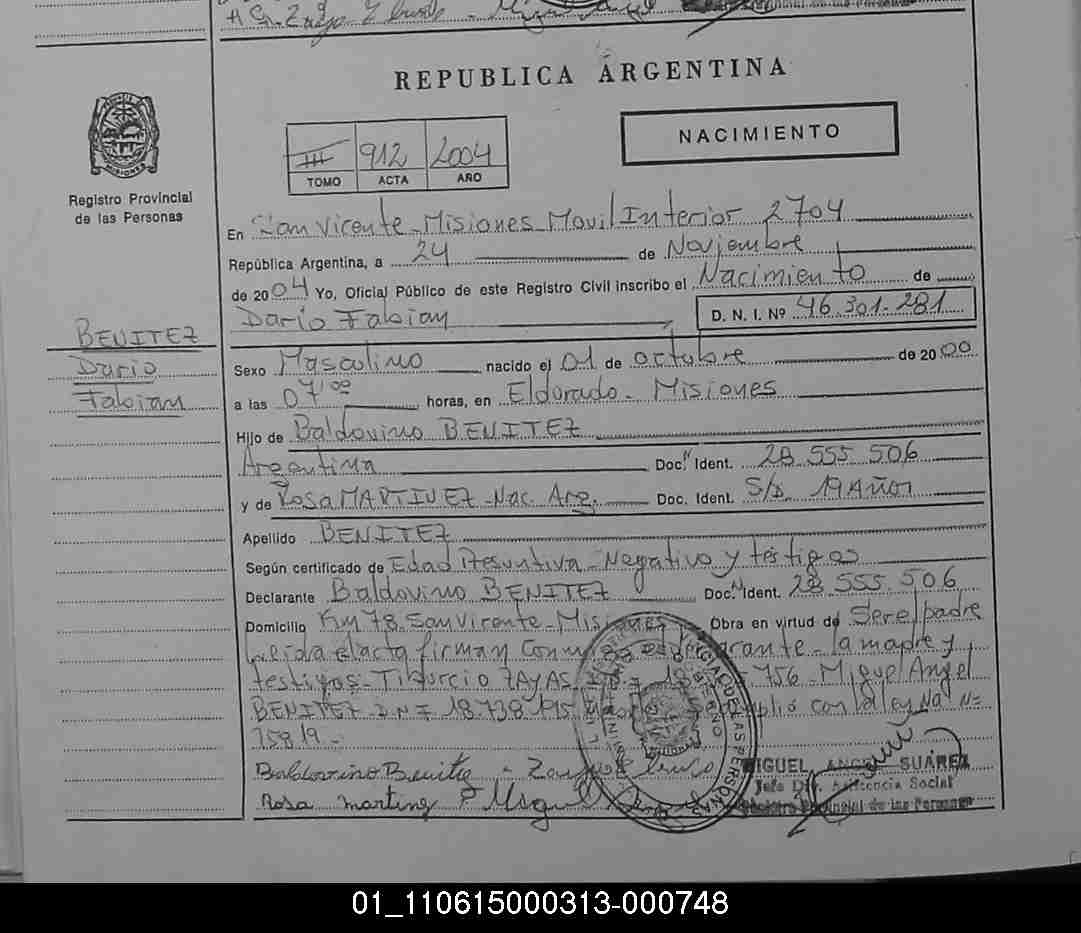 REPUBLICA ARGENTINA
MISIONES
Registro Provincial
de las Personas
III 912 2004
TOMO ACTA AÑO
NACIMIENTO
En San Vicente - Misiones Movil Interior 2704
República Argentina, a 24 de Noviembre
de 2004 Yo, Oficial Público de este Registro Civil inscribo el Nacimiento de
Dario Fabian D. N. I. Nº 46.301.281
BENITEZ
Dario
Fabian
Sexo Masculino nacido el 01 de octubre de 2000
a las 07,00 horas, en Eldorado - Misiones
Hijo de Baldovino BENITEZ
Argentina Doc. Ident. 28.555.506
y de Rosa MARTINEZ - Nac. Arg. Doc. Ident. S/D. 19 Años
Apellido BENITEZ
Según certificado de Edad Presuntiva - Negativo y testigos
Declarante Baldovino BENITEZ Doc. Ident. 28.555.506
Domicilio Km 78. San Vicente - Misiones Obra en virtud de Ser el padre
Leida el acta firman conmigo el declarante - la madre y
testigos - Tiburcio ZAYAS 756 - Miguel Angel
BENITEZ D.N.I 18.738.195 Se cumplió con la ley Na Nº
Baldovino Benitez
Rosa Martinez Miguel
MIGUEL ANGEL SUÁREZ
Jefe Dpto. Asistencia Social
Registro Provincial de las Personas
01_110615000313-000748